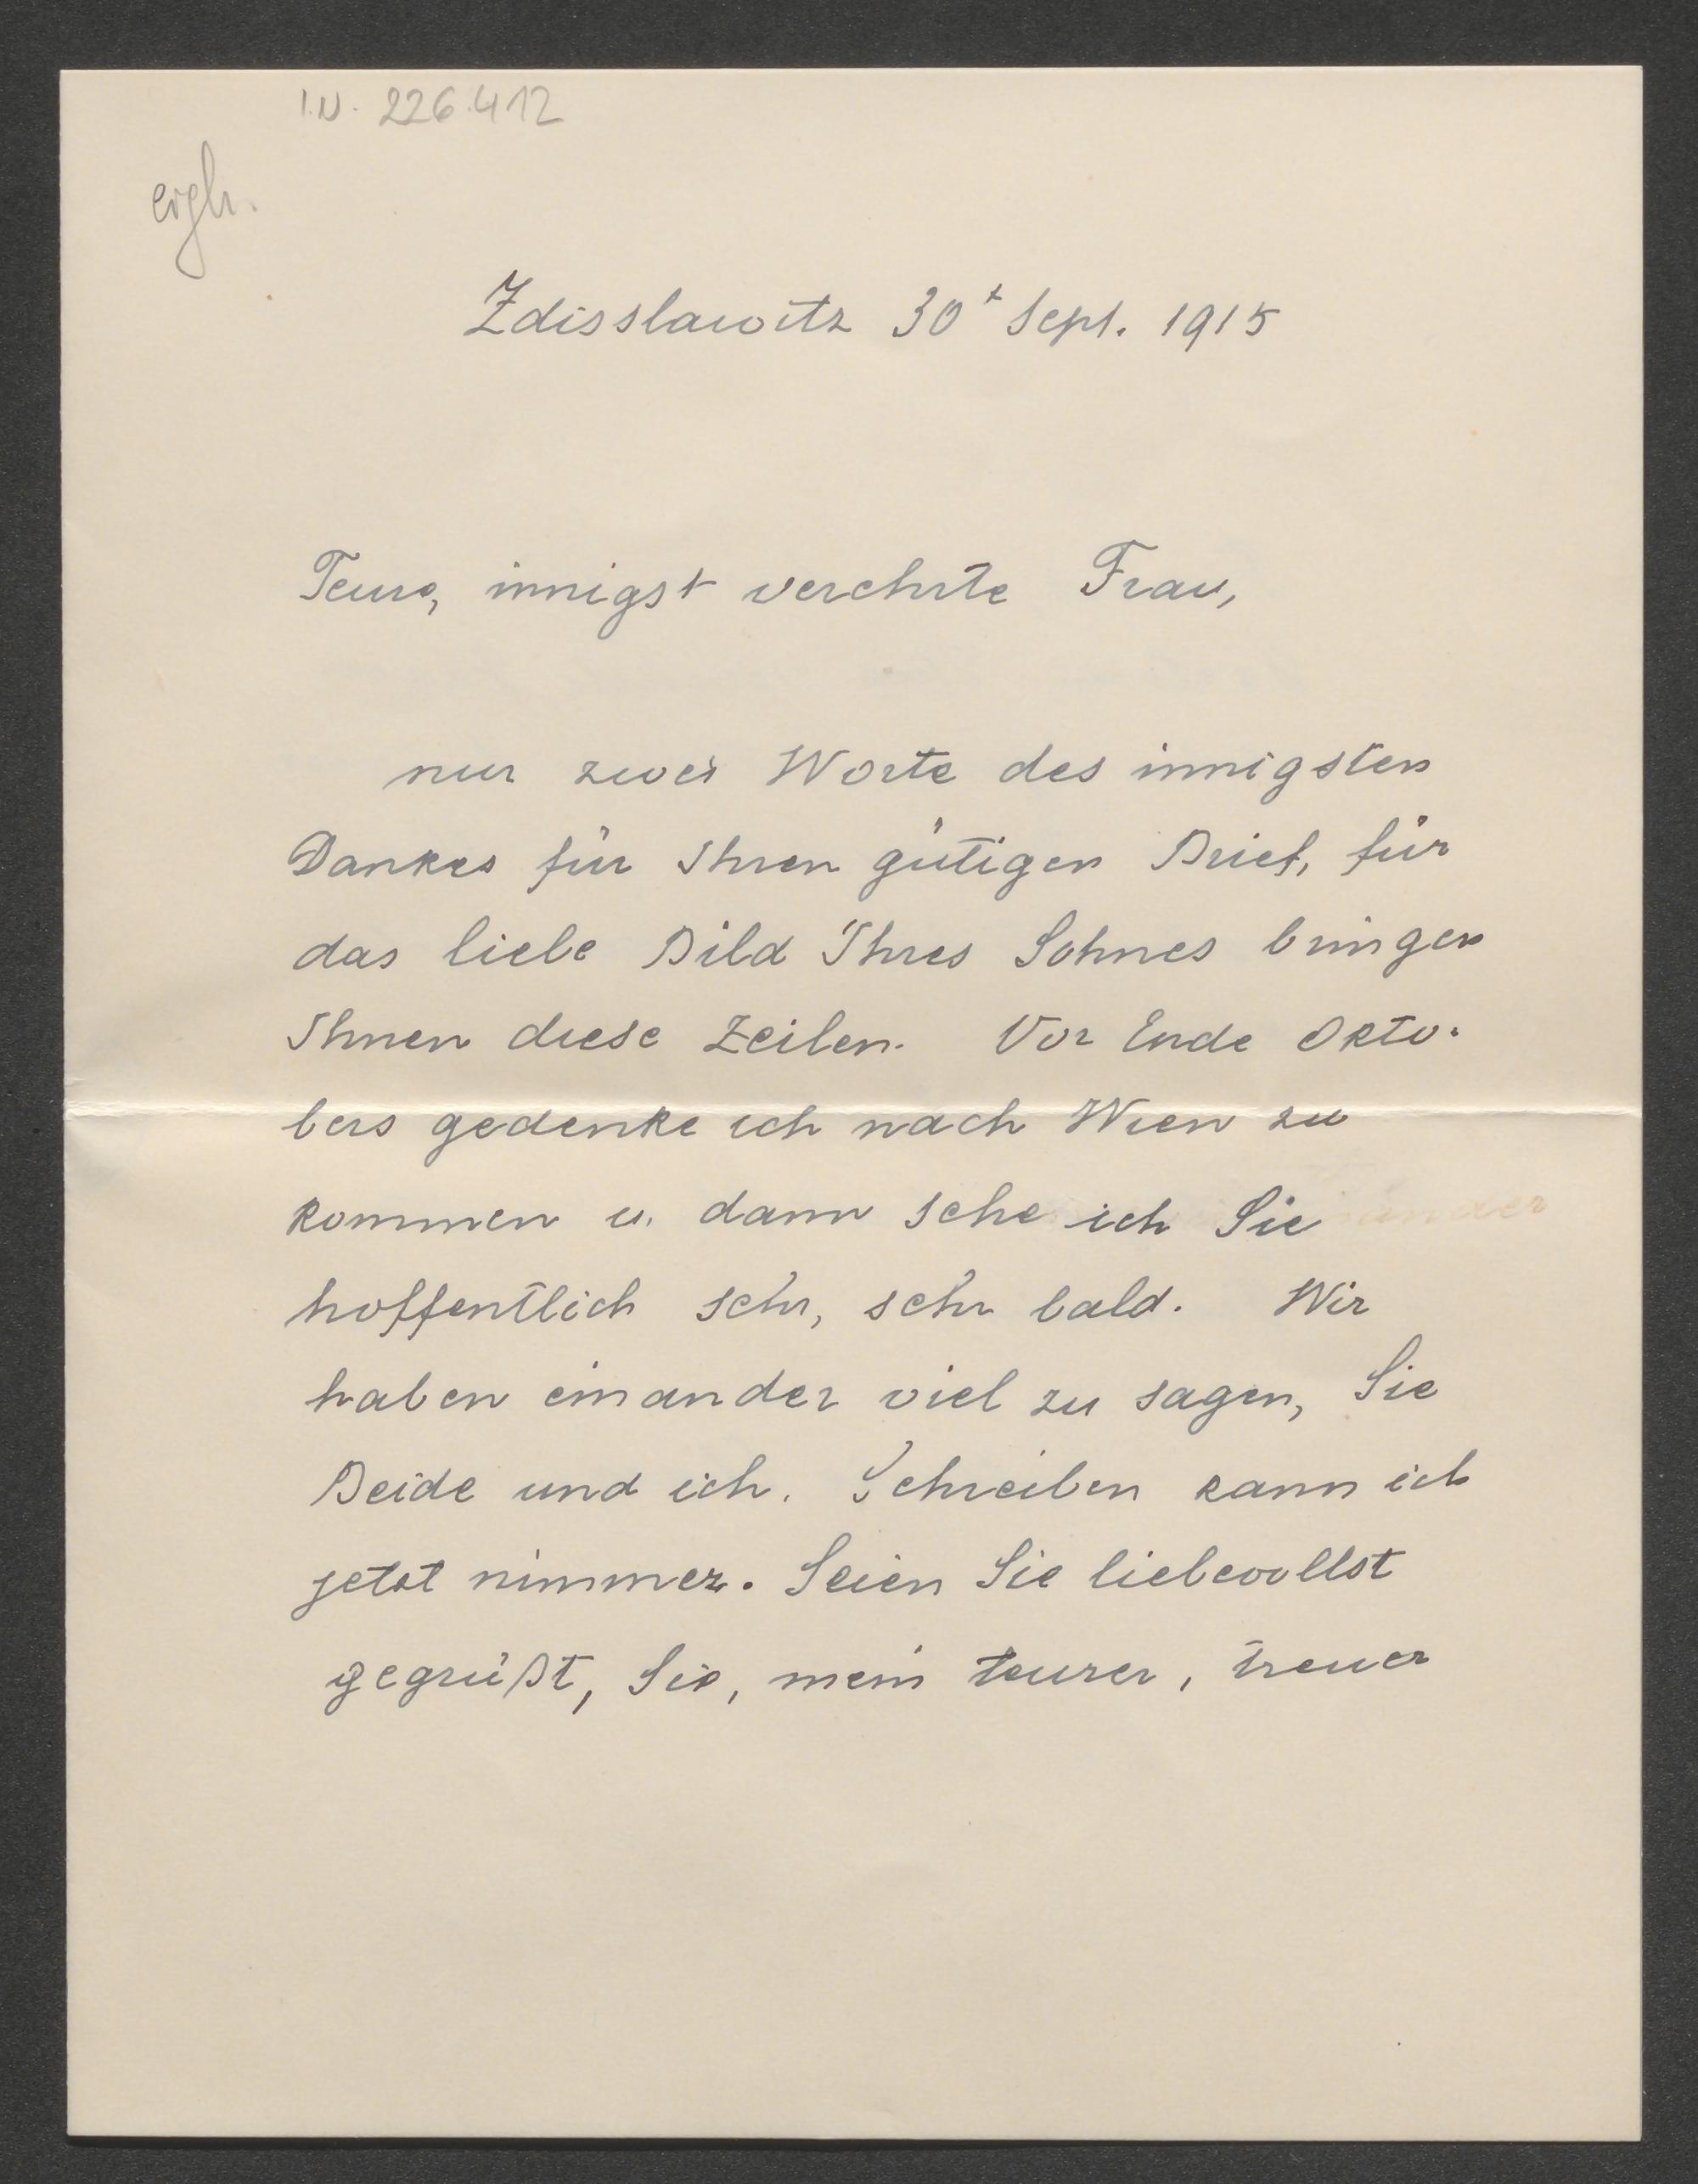 I.N. 226.412
Zdisslawitz 30t Sept. 1915
Teure, innigst verehrte Frau,
nur zwei Worte des innigsten
Dankes für Ihren gütigen Brief, für
das liebe Bild Ihres Sohnes bringen
Ihnen diese Zeilen. Vor Ende Okto-
bers gedenke ich nach Wien zu
kommen u. dann sehe ich Sie
hoffentlich sehr, sehr bald. Wir
haben einander viel zu sagen, Sie
Beide und ich. Schreiben kann ich
jetzt nimmer. Seien Sie liebevollst
gegrüßt, Sie, mein teurer, treuer